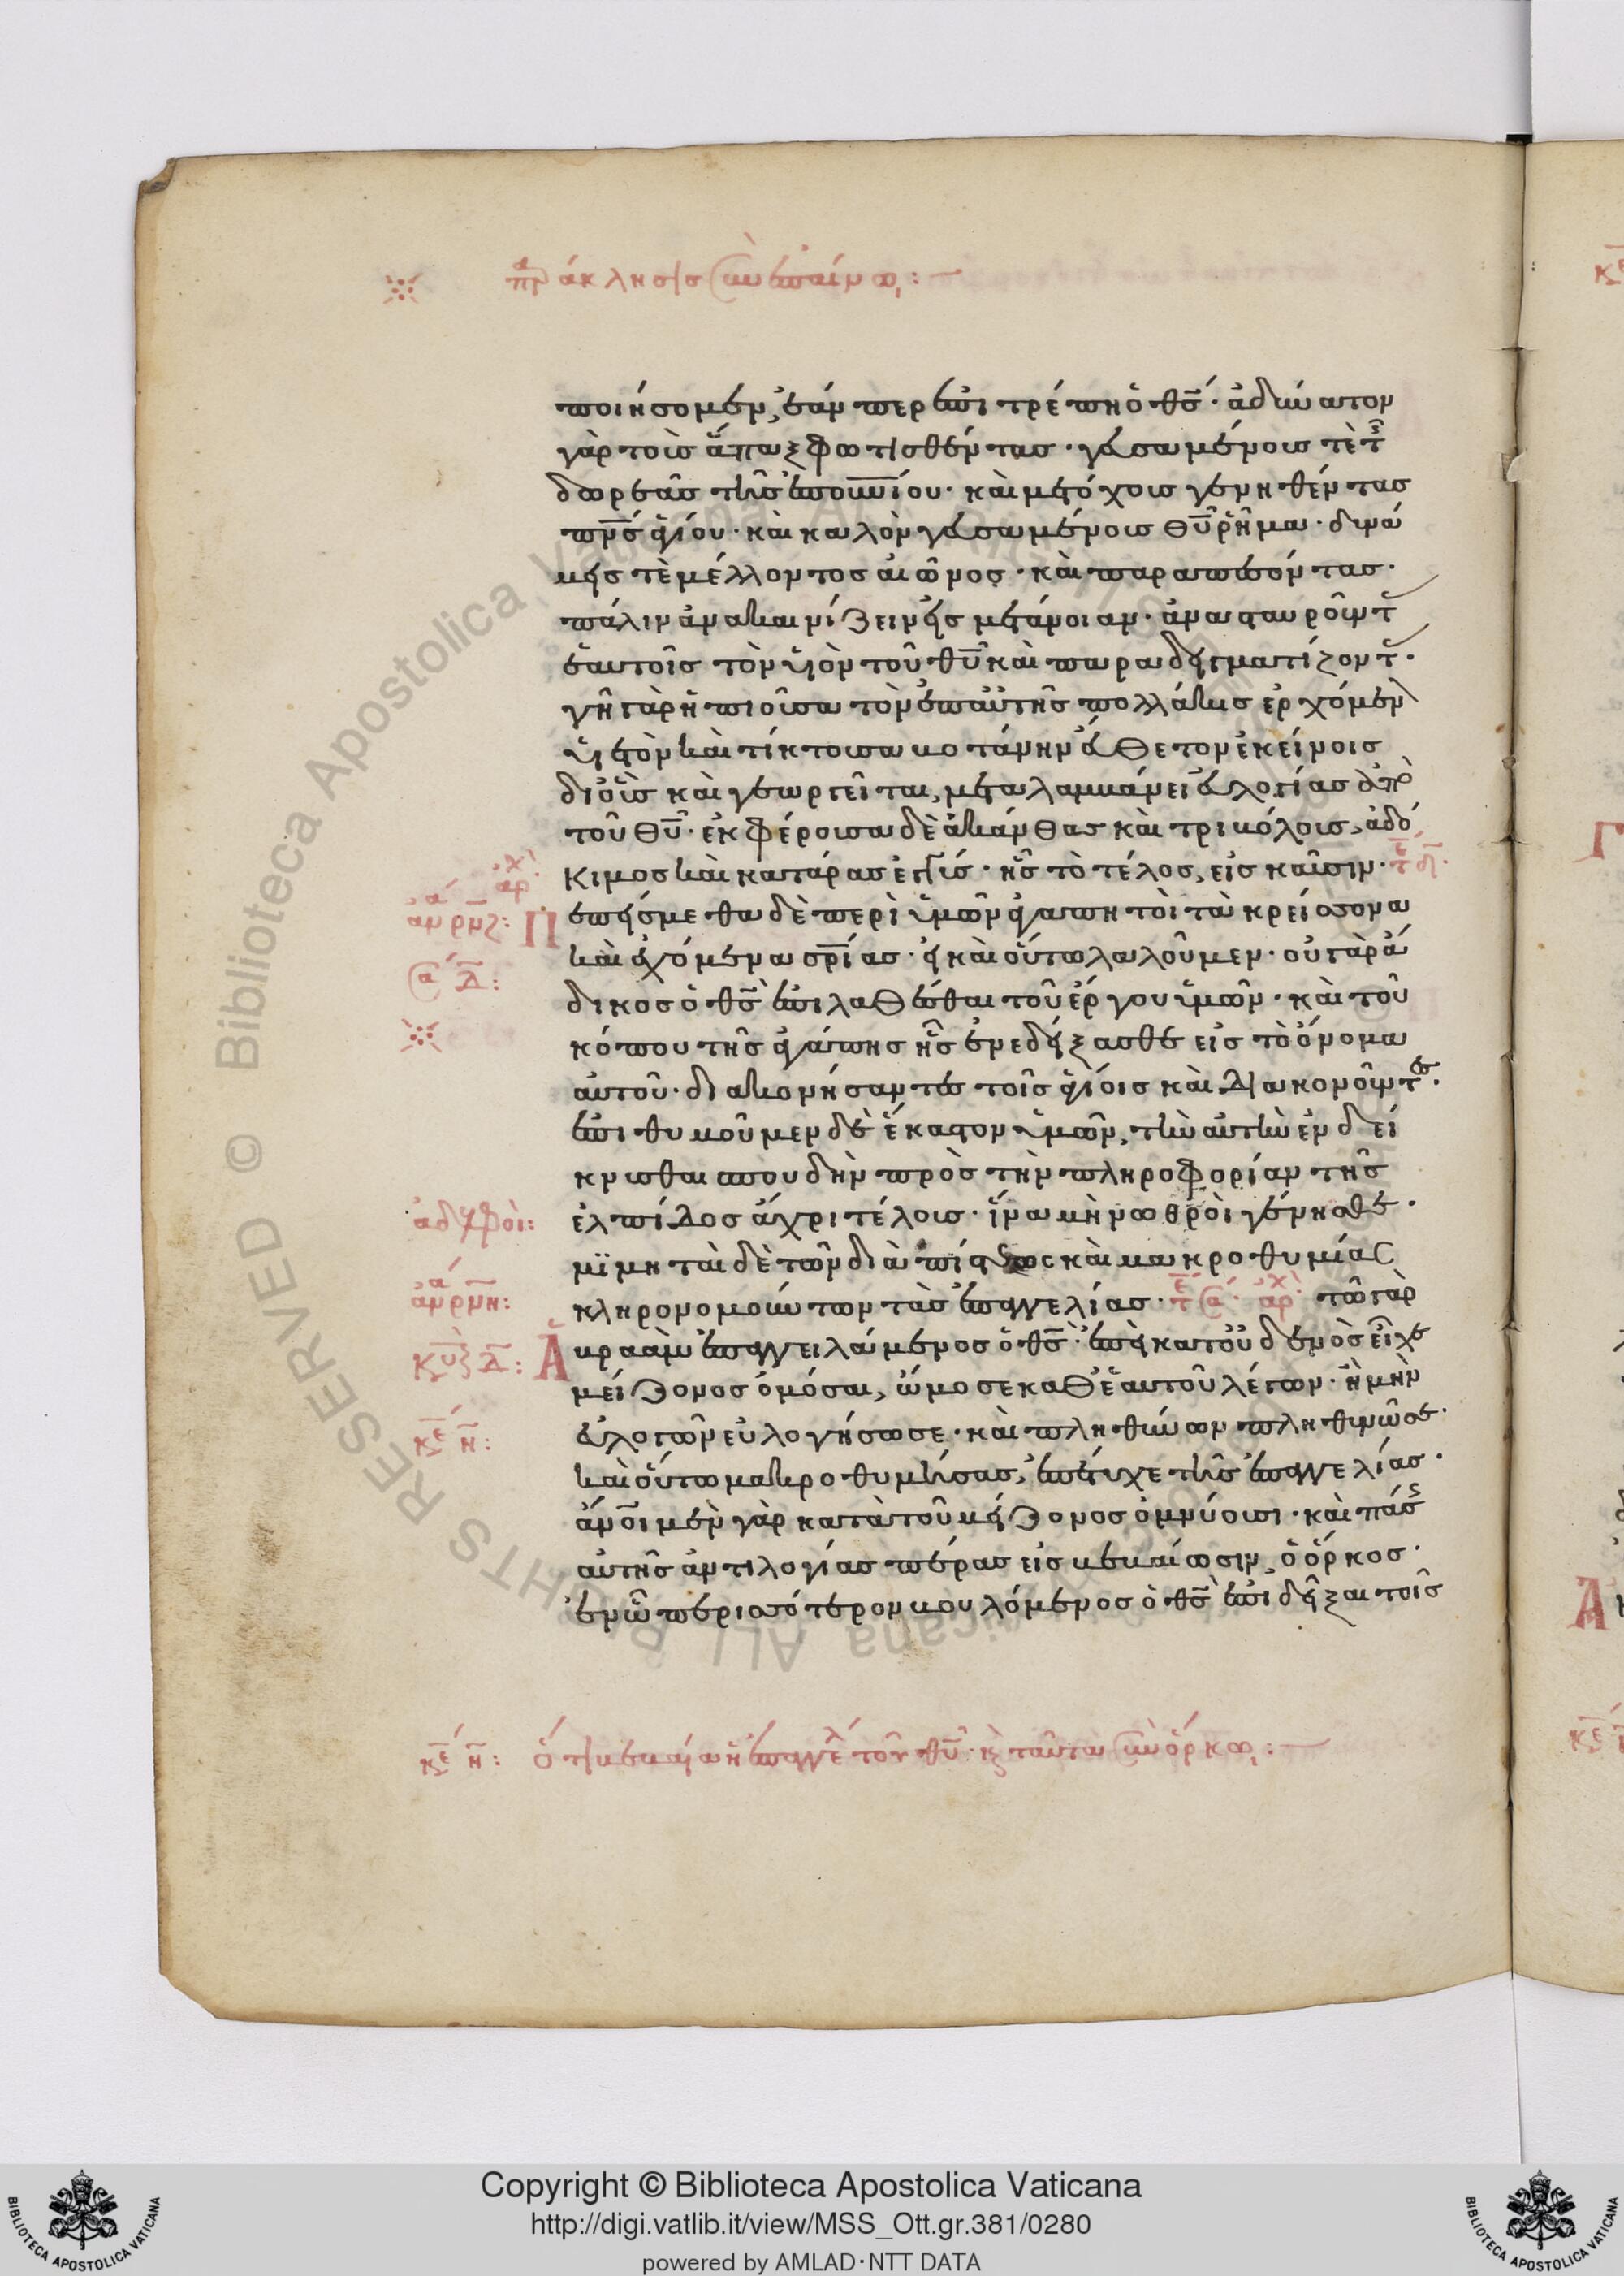 παράκλησις σὺν ἐπαίνω:
ποιήσομεν, ἐάνπερ ἐπιτρέπη ὁ θς̅· ἀδύνατον
γὰρ τοὺς ἅπαξ φωτισθέντας· γευσαμένους τὲ τῆς
δωρεᾶς τῆς ἐπουνίου· καὶ μετόχους γενηθέντας
πνς̅ ἁγίου· καὶ καλὸν γευσαμένους θυ̅ ῥῆμα· δυνά
μεις τὲ μέλλοντος αἰῶνος· καὶ παραπεσόντας·
πάλιν ἀνακαινίζειν εἰς μετάνοιαν· ἀνασταυροῦντ
ἑαυτοῖς τὸν υἱὸν τοῦ θυ̅ καὶ παραδειγματίζοντ·
γῆ γὰρ ἡ πιοῦσα τὸν ἐπ' αὐτῆς πολλάκις ἐρχόμεν
ὑετὸν καὶ τίκτουσα βοτάνην εὔθετον ἐκείνοις
δι' οὓς καὶ γεωργεῖται, μεταλαμβάνει εὐλογίας ἀπὸ
τοῦ θυ̅· ἐκφέρουσα δὲ ἀκάνθας καὶ τριβόλους, ἀδό
κιμος καὶ κατάρας ἐγγύς· ἧς τὸ τέλος, εἰς καῦσιν·
ἀρχ
ἀν ρμζ:
Πεπείσμεθα δὲ περὶ ὑμῶν ἀγαπητοὶ τὰ κρείσσονα
καὶ ἐχόμενα σρίας· εἰ καὶ οὕτω λαλοῦμεν· οὐ γὰρ ἄ
δικος ὁ θς̅ ἐπιλαθέσθαι τοῦ ἔργου ὑμῶν· καὶ τοῦ
κόπου τῆς ἀγάπης ἧς ἐνεδείξασθε εἰς τὸ ὄνομα
αὐτοῦ· διακονήσαντες τοῖς ἁγίοις καὶ διακονοῦντες·
ἐπιθυμοῦμεν δὲ ἕκαστον ὑμῶν, τὴν αὐτὴν ἐνδεί
κνυσθαι σπουδὴν πρὸς τὴν πληροφορίαν τῆς
ἀδελφοὶ:
ἐλπίδος ἄχρι τέλους· ἵνα μὴ νωθροὶ γένησθε·
μϊμηταὶ δὲ τῶν διὰ πίστεως καὶ μακροθυμίας
ἀν ρμη:
κληρονομούντων τὰς ἐπαγγελίας· τῶ γὰρ
Ἀβραὰμ ἐπαγγειλάμενος ὁ θς̅· ἐπεὶ κατ' οὐδενὸς εἶχε
μείζονος ὀμόσαι, ὤμοσε καθ' ἑαυτοῦ λέγων· ἦ μὴν
κε η:
εὐλογῶν εὐλογήσω σε· καὶ πληθύνων πληθυνῶ σε·
καὶ οὕτω μακροθυμήσας, ἐπέτυχε τῆς ἐπαγγελίας·
ἄνοι μὲν γὰρ κατὰ τοῦ μείζονος ὀμνύουσι· καὶ πάσης
αὐτῆς ἀντιλογίας πέρας εἰς βεβαίωσιν, ὁ ὅρκος·
ἐν ᾧ περισσότερον βουλόμενος ὁ θς̅ ἐπιδεῖξαι τοῖς
κε η: ὅτι βεβαία ἡ ἐπαγγελ τοῦ θυ̅· κ ταῦτα σὺν ὅρκω:
© Biblioteca Apostolica Vaticana ALL RIGHTS RESERVED
Copyright © Biblioteca Apostolica Vaticana
http://digi.vatlib.it/view/MSS_Ott.gr.381/0280
powered by AMLAD·NTT DATA
BIBLIOTECA APOSTOLICA VATICANA
BIBLIOTECA APOSTOLICA VATICANA